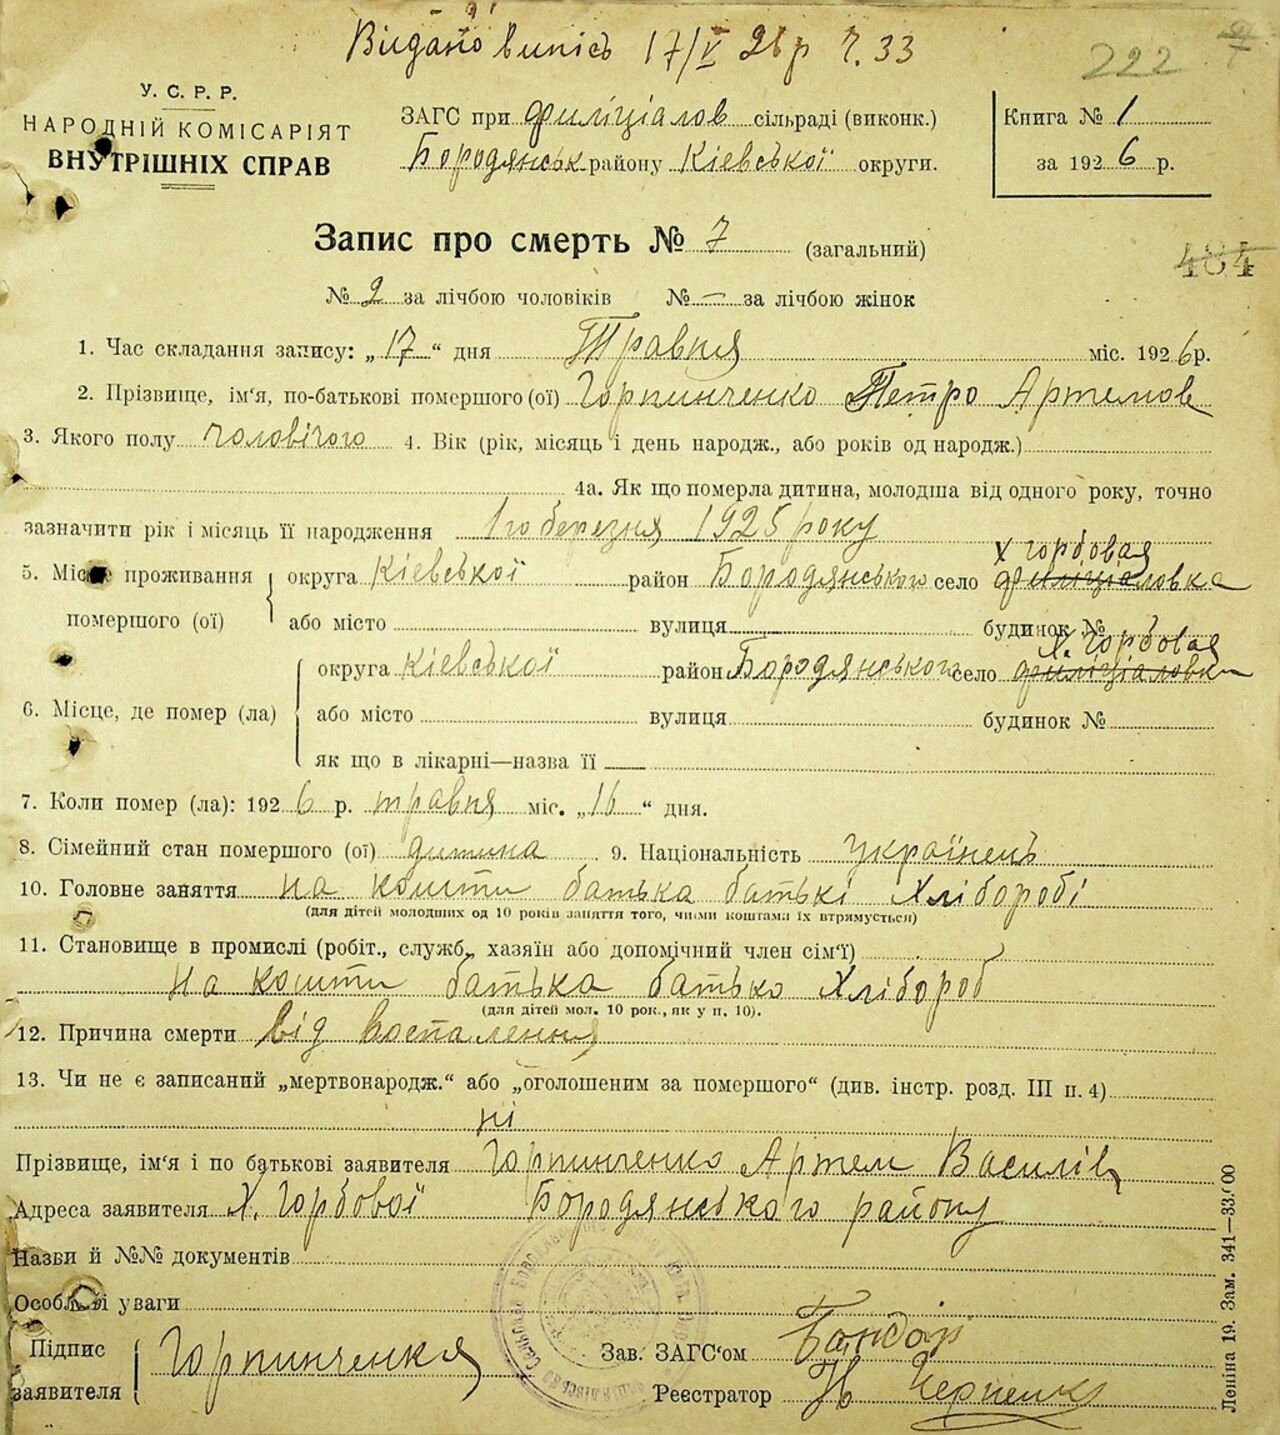 Видано випісь 17/V 26 р Ч. 33
222
У. С. Р. Р.
НАРОДНІЙ КОМІСАРІЯТ
ВНУТРІШНІХ СПРАВ
ЗАГС при Филіціалов сільраді (виконк.)
Бородянськ району Кіевської округи.
Книга № 1
за 1926 р.
Запис про смерть № 7 (загальний)
484
№ 2 за лічбою чоловіків № — за лічбою жінок
1. Час складання запису: „17“ дня Травня міс. 1926 р.
2. Прізвище, ім‘я, по-батькові помершого (ої) Горпинченко Петро Артемов
3. Якого полу чоловічого 4. Вік (рік, місяць і день народж., або років од народж.)
4а. Як що померла дитина, молодша від одного року, точно
зазначити рік і місяць її народження 1го березня 1925 року
Х Горбовая
5. Місце проживання округа Кіевської район Бородянського село Филіціаловка
помершого (ої) або місто вулиця будинок №
Х. Горбовая
округа Кіевської район Бородянського село Филіціаловка
6. Місце, де помер (ла) або місто вулиця будинок №
як що в лікарні—назва її
7. Коли помер (ла): 1926 р. травня міс. „16“ дня.
8. Сімейний стан помершого (ої) дитина 9. Національність Українець
10. Головне заняття на кошти батька батькі Хліборобі
(для дітей молодших од 10 років заняття того, чиїми коштами їх втримується)
11. Становище в промислі (робіт., служб., хазяїн або допомічний член сім‘ї)
на кошти батька батько Хлібороб
(для дітей мол. 10 рок., як у п. 10).
12. Причина смерти від воспалення
13. Чи не є записаний „мертвонародж.“ або „оголошеним за помершого“ (див. інстр. розд. III п. 4)
ні
Прізвище, ім‘я і по батькові заявителя Горпинченко Артем Василів
Адреса заявителя Х. Горбової Бородянського району
Назви й №№ документів
Особливі уваги
Підпис
заявителя Горпинченкя
Зав. ЗАГС‘ом Бондар
Реєстратор
Леніна 19. Зам. 341—33.